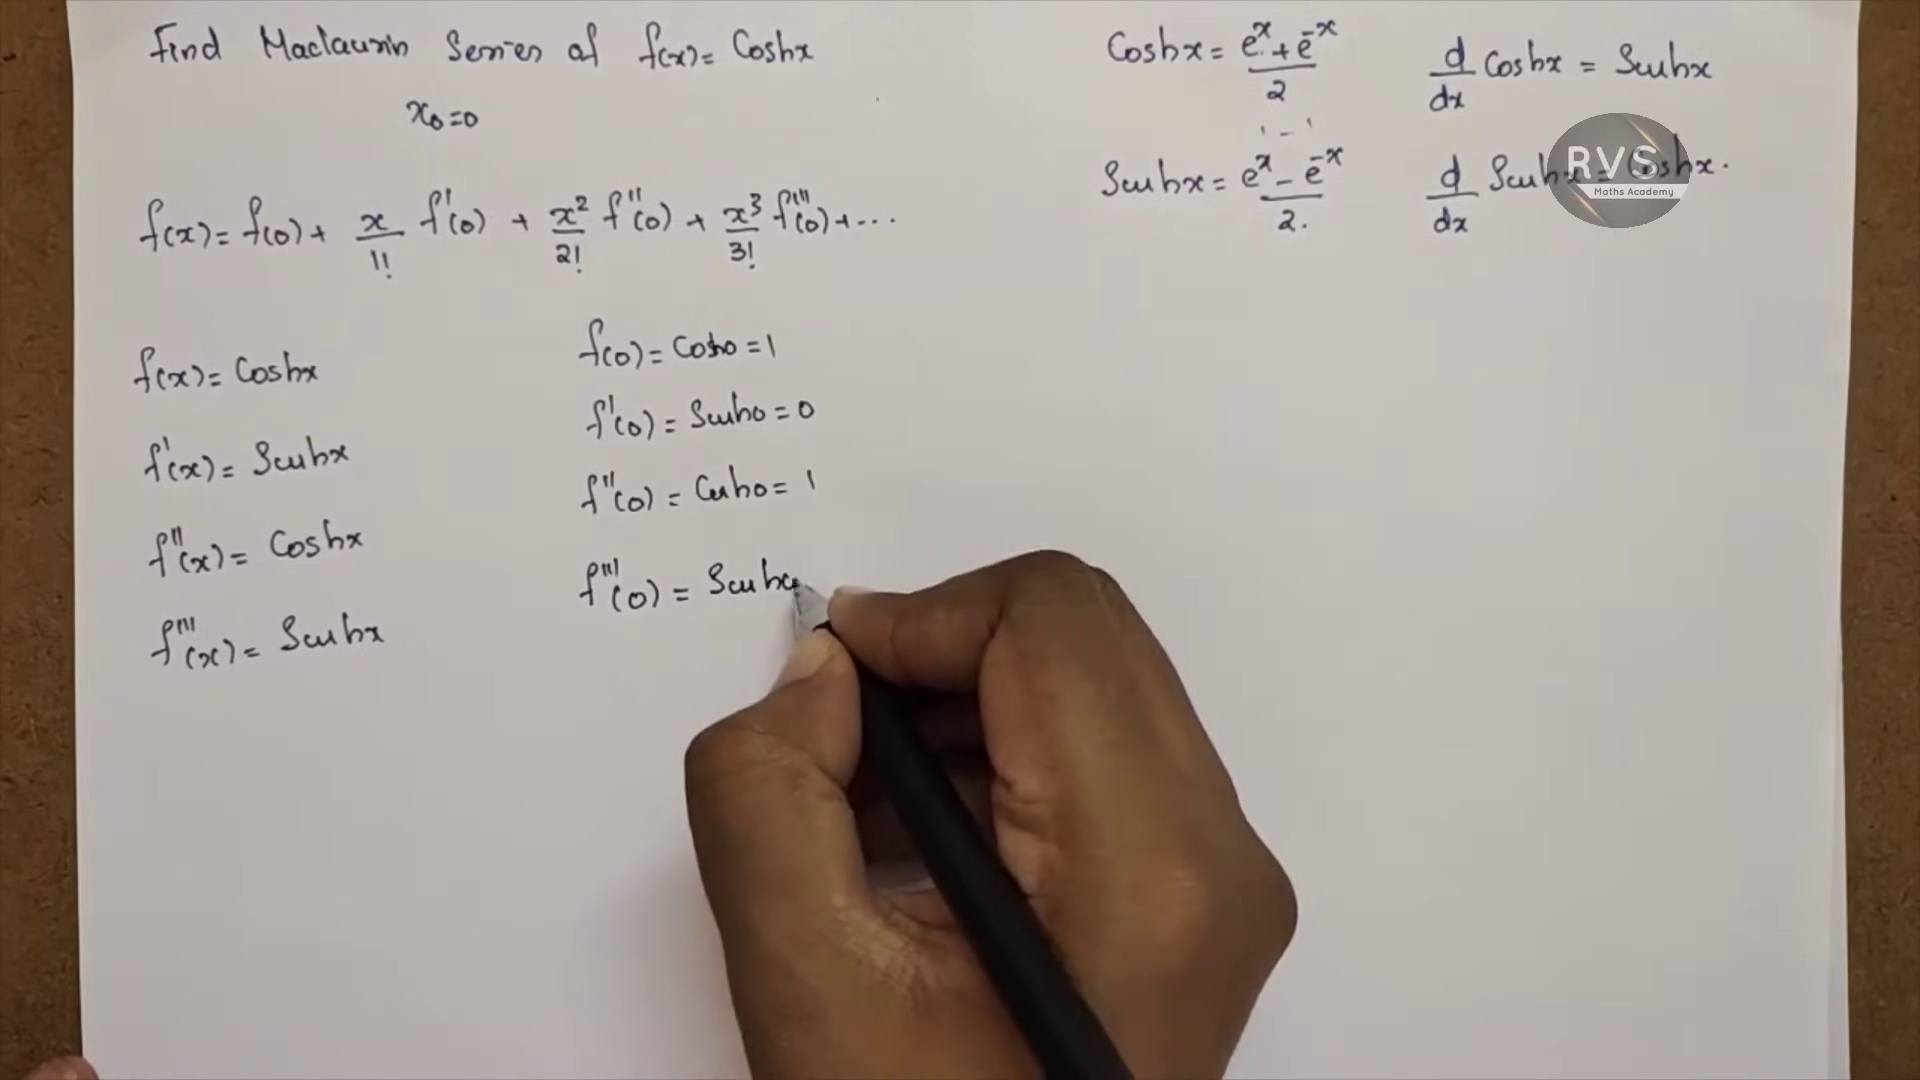 Find Maclaurin Series of f(x) = Coshx
x₀=0
f(x) = f(0) + x/1! f'(0) + x²/2! f''(0) + x³/3! f'''(0) + ...
f(x) = Coshx
f'(x) = Sinhx
f''(x) = Coshx
f'''(x) = Sinhx
f(0) = Cosh0 = 1
f'(0) = Sinh0 = 0
f''(0) = Cosh0 = 1
f'''(0) = Sinhx
Coshx = (e^x + e^-x)/2
Sinhx = (e^x - e^-x)/2.
d/dx Coshx = Sinhx
d/dx Sinhx = Coshx.
RVS
Maths Academy